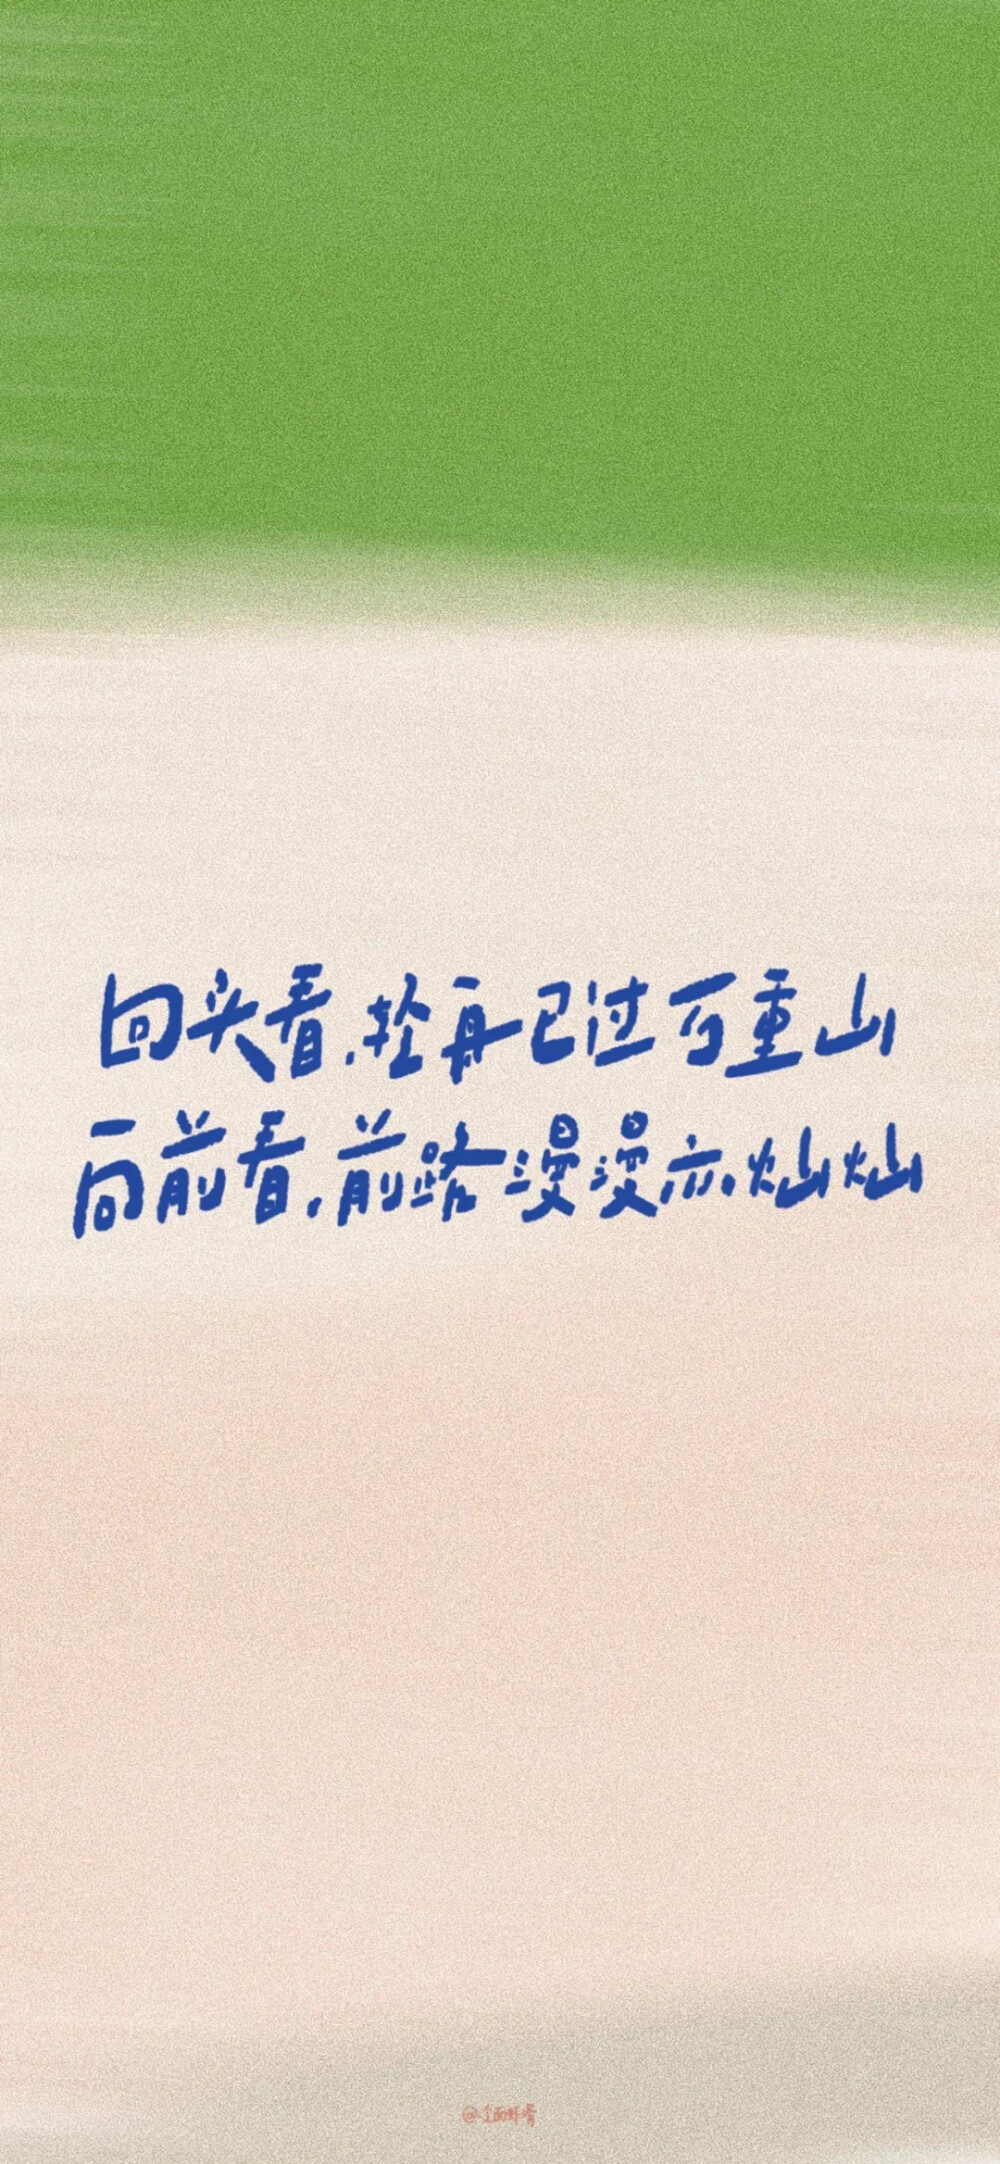 回头看,轻舟已过万重山
向前看,前路漫漫亦灿灿